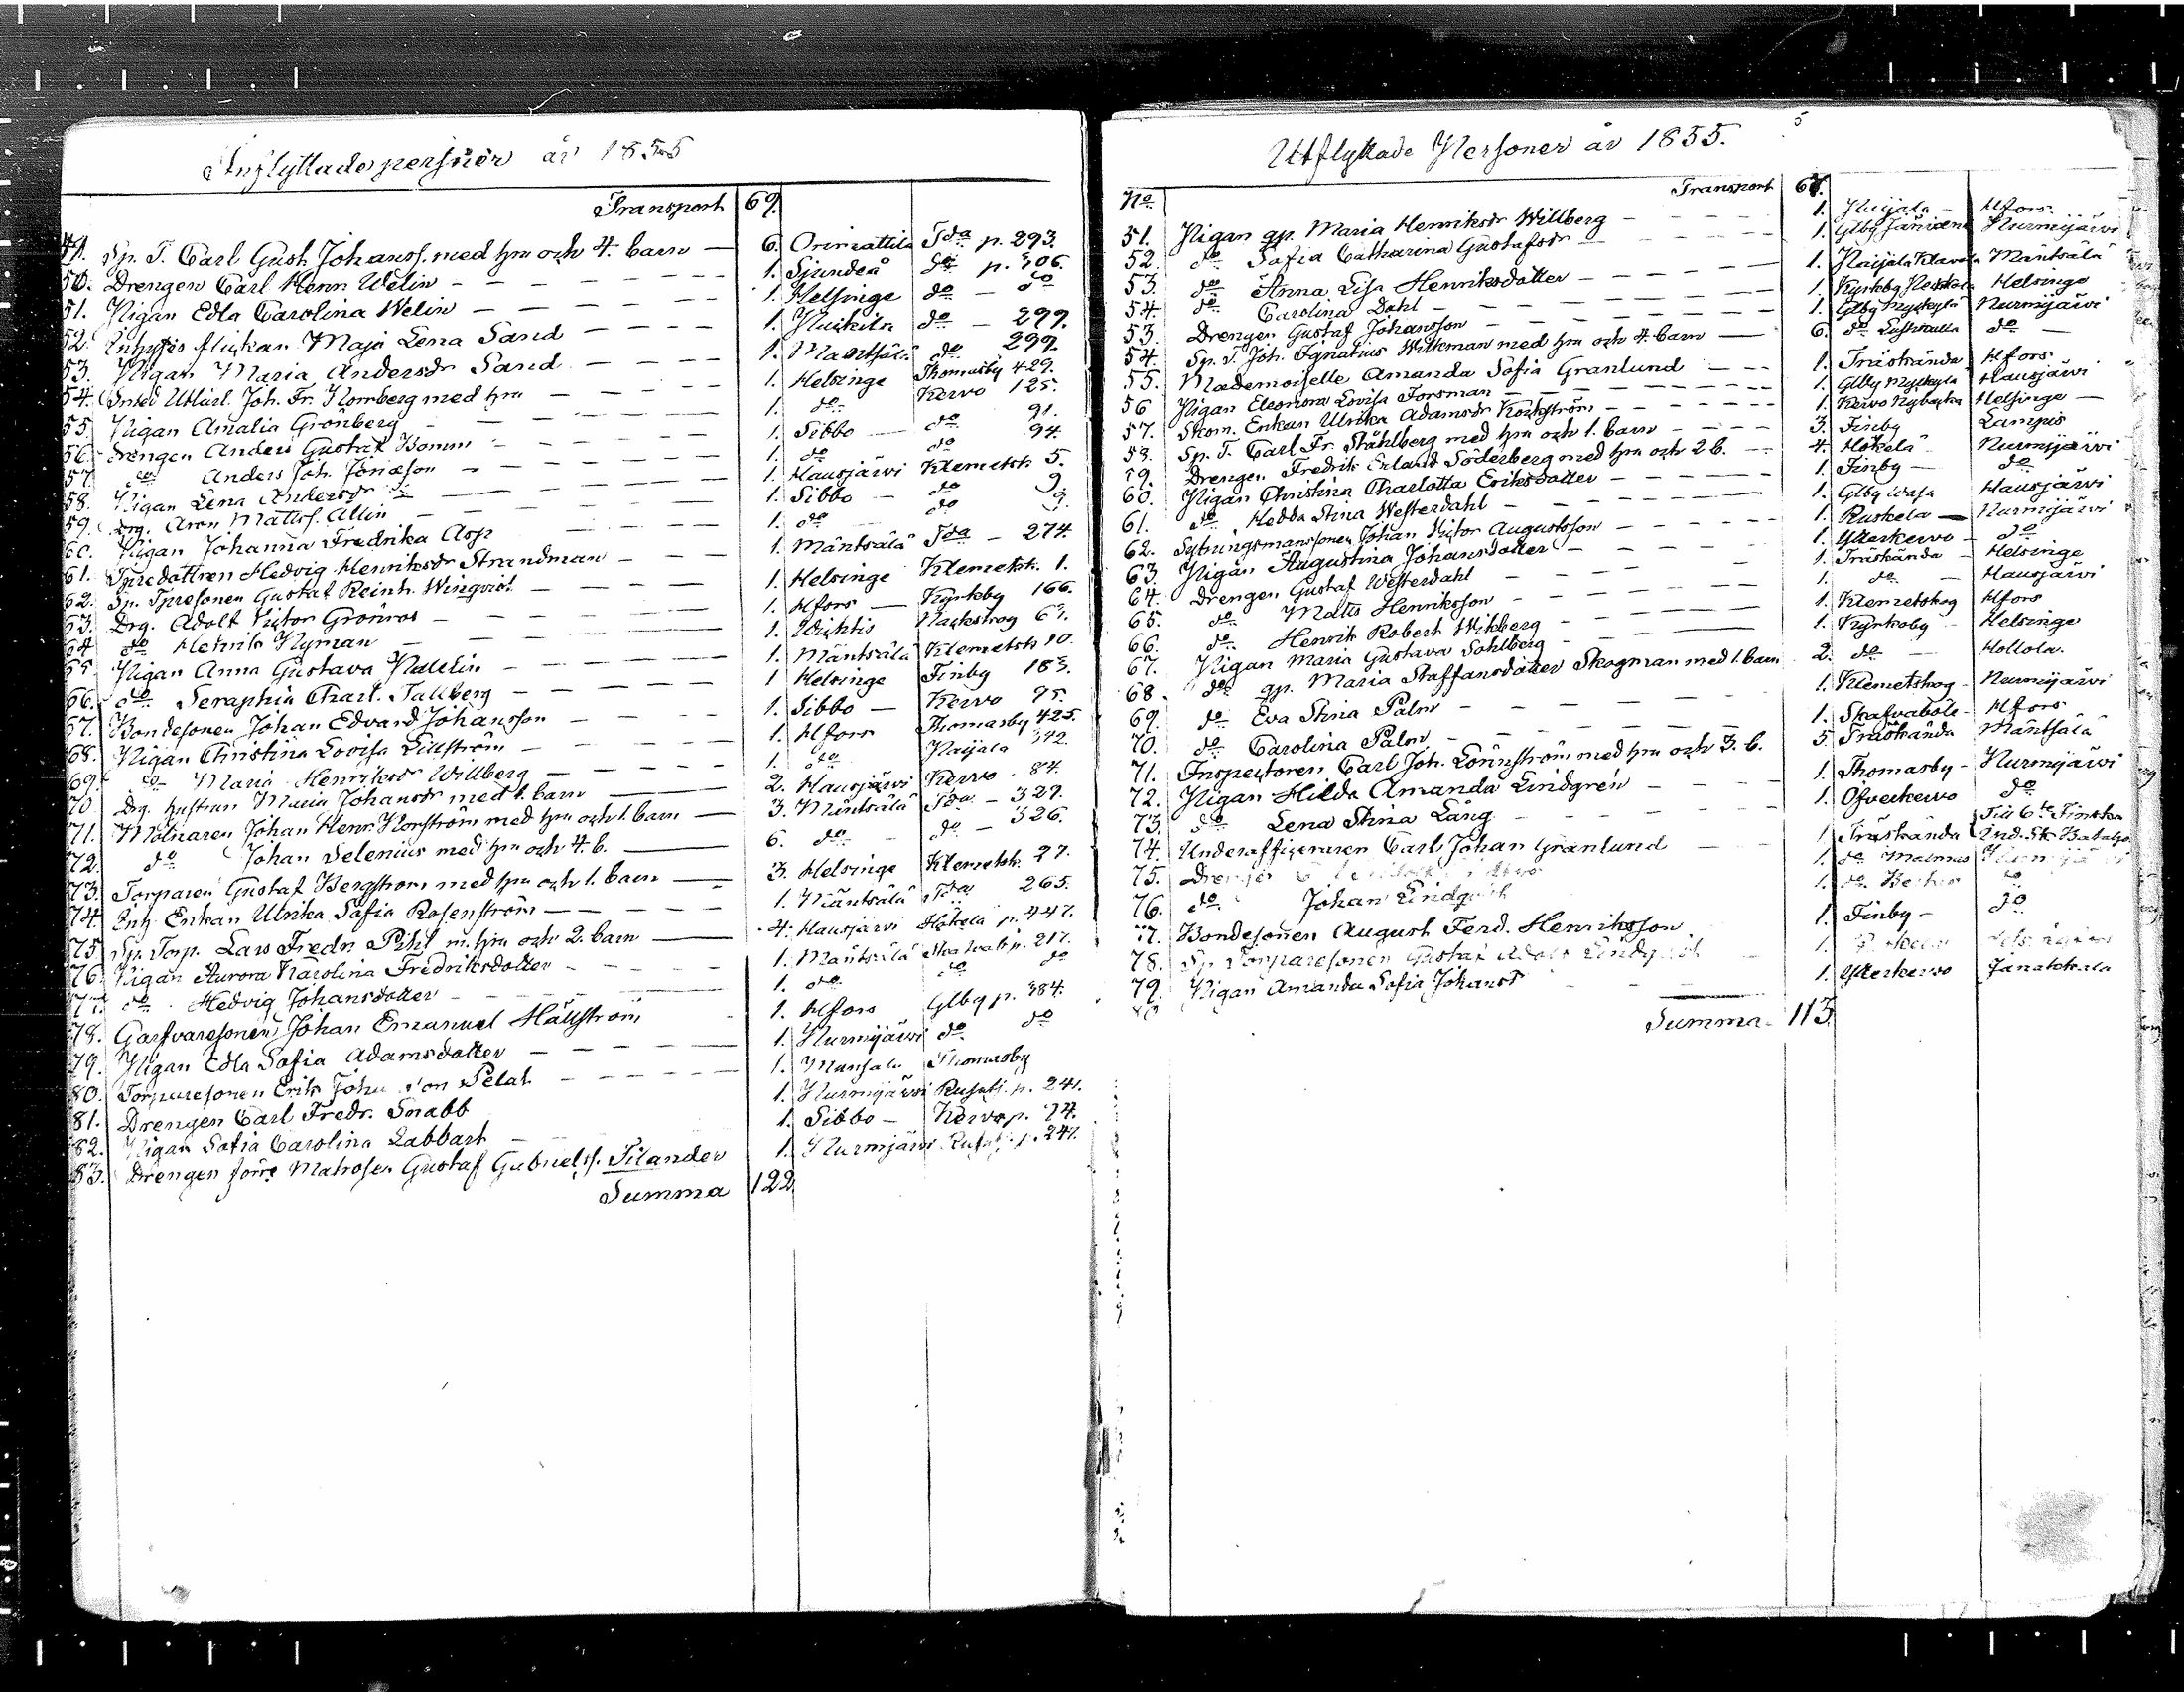 Inflyttade personer år 1855
Transport 69.
49. Sp. T. Carl Gust. Johanss. med hru och 4. barn — 6. Orimattila Tda p. 293.
50. Drengen Carl Henr. Welin — 1. Sjundeå do p. 306.
51. Pigan Edla Carolina Welin — 1. Helsinge do — do
52. Inhyses flickan Maja Lena Sand — 1. do — 299.
53. Pigan Maria Andersdr Sand — 1. Mäntsälä do 299.
54. Joh. Fr. med hru — 1. Helsinge Thomasby 429.
55. Pigan Amalia Grönberg — 1. do Kervo 125.
56. Drengen Anders Gustaf Bomm — 1. Sibbo — do 91.
57. do Anders Joh. Jonasson — 1. do do 94.
58. Pigan Lena Andersdr — 1. Hausjärvi Klemetsk. 5.
59. Drg. Aron Mattss. Allin — 1. Sibbo — do 9.
60. Pigan Johanna Fredrika Asp 1. do do 9.
61. Tpredottren Hedvig Henriksdr Strandman — 1. Mäntsälä Tda — 274.
62. Sp. Tpresonen Gustaf Reinh. Winqvist — 1. Helsinge Klemetsk. 1.
63. Drg. Adolf Victor Grönros — 1. Hfors — Kyrkby 166.
64. do Henrik Nyman — 1. Wichtis Nackskog 67.
65. Pigan Anna Gustava — 1. Mäntsälä Klemetsk 10.
66. do Seraphia Charl. Tallberg — 1 Helsinge Finby 183.
67. Bondesonen Johan Edvard Johansson — 1. Sibbo — Kervo 95.
68. Pigan Christina Lovisa Lillström — 1. Hfors Thomasby 425.
69. do Maria Henriksdr Willberg — 1. do Paijala 342.
70 Drg. hustrun Maria Johansdr med 1. barn — 2. Hausjärvi Kervo 84.
71. Mölnaren Johan Henr. Norström med hru och 1. barn — 3. Mäntsälä Tda — 329.
72. do Johan Selenius med hru och 4. b. — 6. do — do — 326.
73. Torparen Gustaf Bergstrom med hru och 1. barn — 3. Helsinge Klemetsk. 27.
74. Inh. Enkan Ulrika Sofia Rosenström — 1. Mäntsälä Tda 265.
75. Sp. Torp. Lars Fredr. Pihl m. hru och 2. barn — 4. Hausjärvi Hökelä p. 447.
76. Pigan Aurora Karolina Fredriksdotter — 1. Mäntsälä p. 217.
77. do Hedvig Johansdotter — 1. do do do
78. Garfvaresonen Johan Emanuel Hällström 1. Hfors Glby p. 384.
79. Pigan Edla Sofia Adamsdotter — 1. Nurmijärvi do do
80. Torparesonen Erik Pelat — 1. Thomasby
81. Drengen Carl Fredr. Snabb 1. Nurmijärvi p. 241.
82. Pigan Sofia Carolina Labbart — 1. Sibbo — Kervo p. 74.
83. Drengen förre Matrosen Gustaf Gabrielss. Silander 1. Nurmijärvi p. 241.
Summa 122
Utflyttade Personer år 1855.
No Transport 67.
51. Pigan gp. Maria Henriksdr Willberg — 1. Paijala — Hfors.
52. do Sofia Catharina Gustafsdr — 1. Glby Nurmijärvi
53. do Anna Lisa Henriksdotter — 1. Paijala Mäntsälä
54. do Carolina Dahl — 1. Kyrkby Helsinge
53. Drengen Gustaf Johansson — 1. Glby Myckylä Nurmijärvi
54. Sp. T. Joh. Ignatius Wikman med hru och 4. barn — 6. do do —
55. Mademoiselle Amanda Sofia Granlund — 1. Träskända Hfors
56 Pigan Eleonora Lovisa Forsman — 1. Glby Myckylä Hausjärvi
57. Skom. Enkan Ulrika Adamsdr Korkström — 1. Kervo Nybacka Helsinge —
58. Sp. T. Carl Fr. Ståhlberg med hru och 1. barn — 3. Finby Lampis
59. Drengen Fredrik Erland Söderberg med hru och 2 b. — 4. Hökelä Nurmijärvi
60. Pigan Christina Charlotta Eriksdotter — 1. Finby — do
61. do Hedda Stina Westerdahl — 1. Glby Hausjärvi
62. Sytningsmanssonen Johan Victor Augustsson — 1. Ruskela — Nurmijärvi
63. Pigan Augustina Johansdotter — 1. Ytterkervo — do
64. Drengen Gustaf Westerdahl — 1. Träskända — Helsinge
65. do Matts Henriksson — 1. do — Hausjärvi
66. do Henrik Robert Wikberg — 1. Klemetskog Hfors
67. Pigan Maria Gustava Sohlberg — 1. Kyrkoby — Helsinge
68. do gp. Maria Staffansdotter Skogman med 1. barn 2. do — Hollola.
69. do Eva Stina Palm — 1. Klemetskog — Nurmijärvi
70. do Carolina Palm — 1. Skafvaböle — Hfors
71. Inspectoren Carl Joh. Lönnström med hru och 3. b. 5. Träskända Mäntsälä
72. Pigan Hilda Amanda Lindgren — 1. Thomasby — Nurmijärvi
73. do Lena Stina Lång — 1. Öfverkervo do
74. Underofficeraren Carl Johan Granlund — 1 Träskända Till 6te Finska Ind. Sk. Bataljo
75. 1. do
76. do Johan Lindqvist 1. do do
77. Bondesonen August Ferd. Henriksson 1. Finby — do
78. Sp Torparesonen Gustaf Adolf Lindqvist — 1.
79. Pigan Amanda Sofia Johansd — 1. Ytterkervo Janakkala
80
Summa. 113.